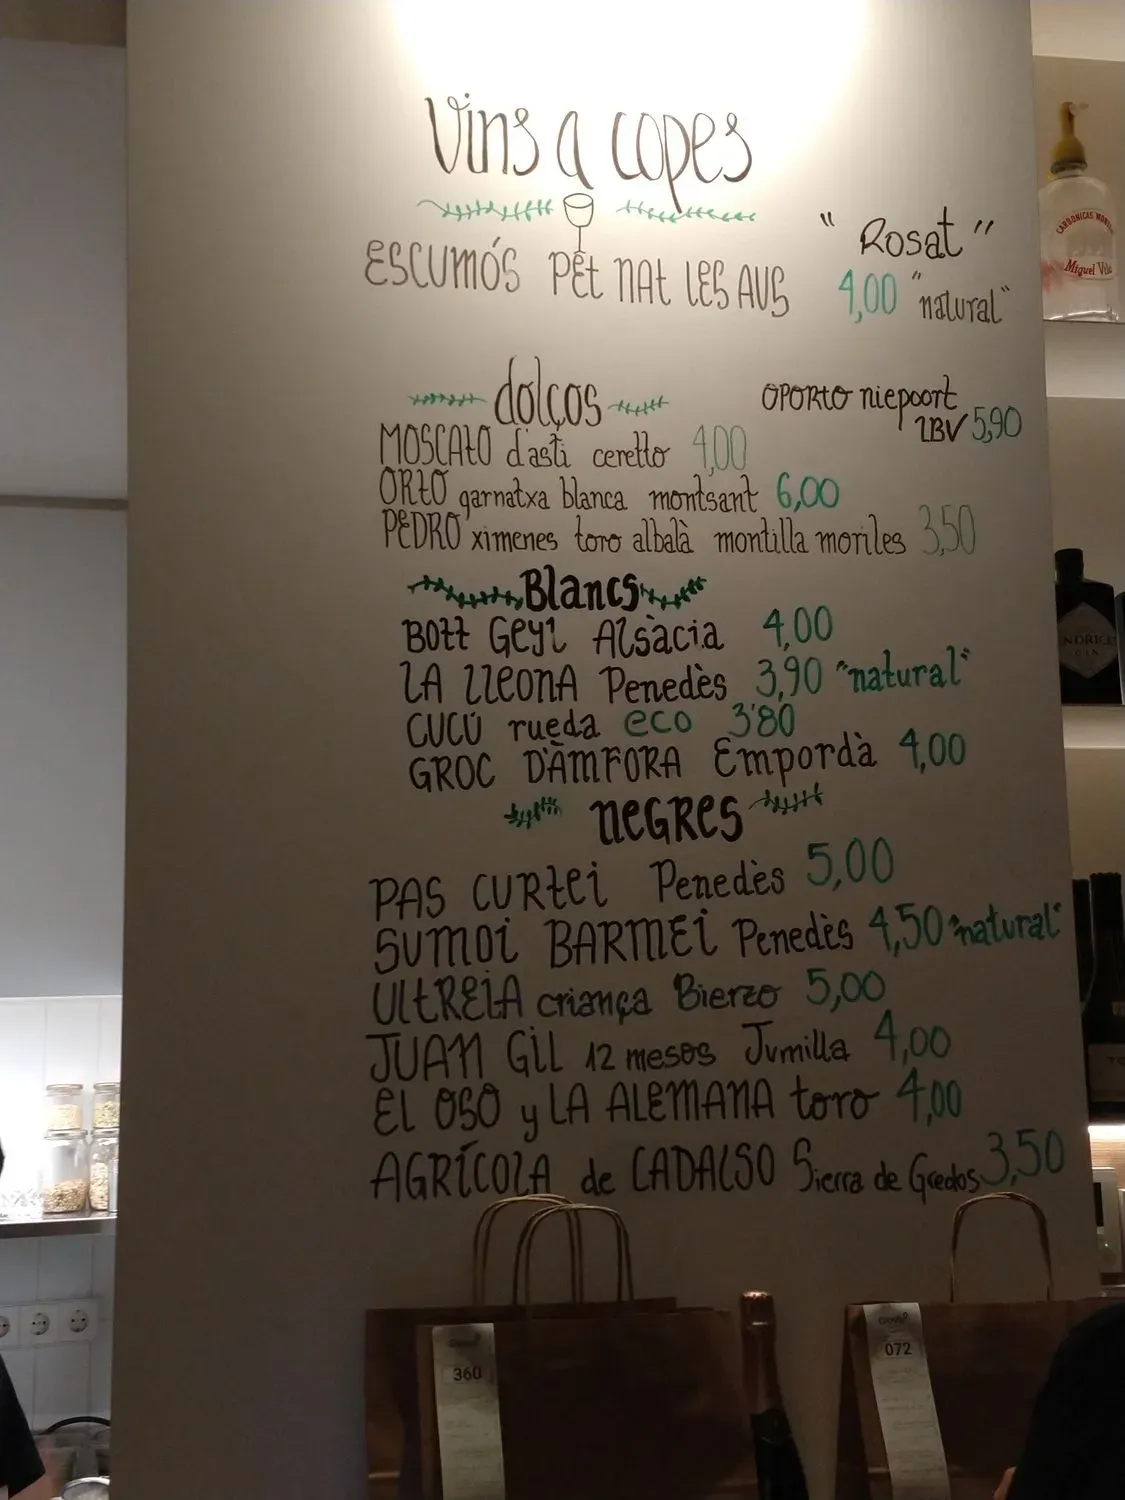 Vins a copes
"Rosat"
ESCUMÓS PÉT NAT LES AUS 4,00 "natural"
dolços
OPORTO niepoort
LBV 5,90
MOSCATO d'asti ceretto 4,00
ORTO garnatxa blanca montsant 6,00
PEDRO ximenes toro albalà montilla moriles 3,50
Blancs
BOTT GEYL Alsàcia 4,00
LA LLEONA Penedès 3,90 "natural"
CUCÚ rueda eco 3'80
GROC D'ÀMFORA Empordà 4,00
NEGRES
PAS CURTEI Penedès 5,00
SUMOI BARMEI Penedès 4,50 "natural"
ULTREIA criança Bierzo 5,00
JUAN GIL 12 mesos Jumilla 4,00
EL OSO y LA ALEMANA toro 4,00
AGRÍCOLA de CADALSO Sierra de Gredos 3,50
CARBONICAS
Miguel
360
072